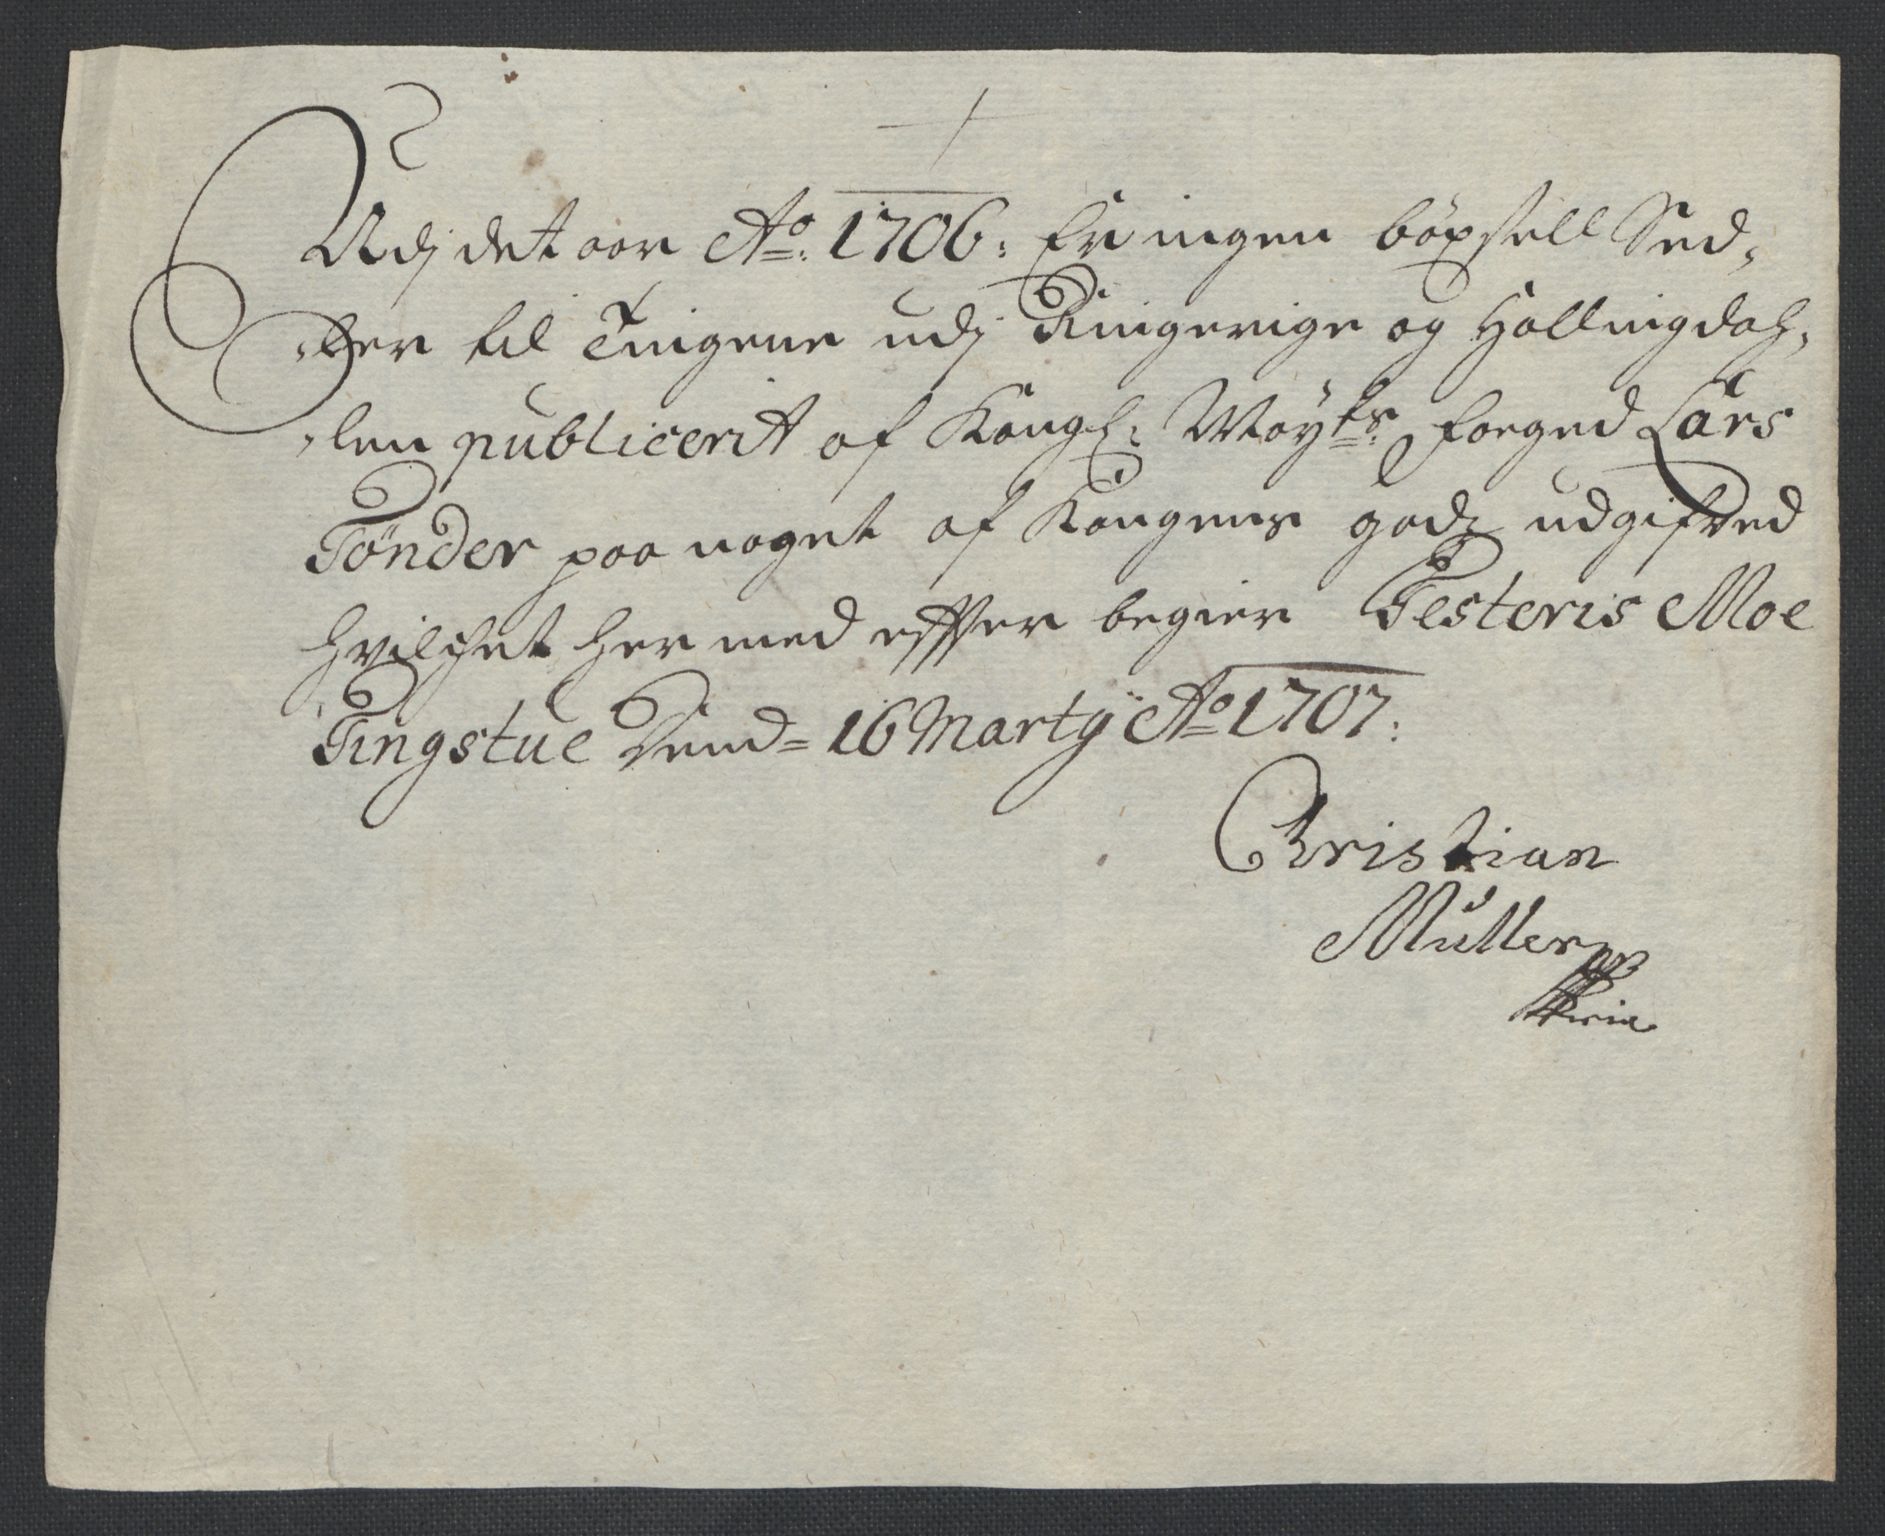 Udj det aar Ao: 1706: Er ingen böxsell Sed,
,ler til Tingene udj Ringerige og Hallingdah,
,len publicerit af Kongl: Mayts: foeged Lars
Tønder paa noget af Kongens godz udgifved
hvilchet her med effter begier Testeris Moe
Tingstue Dend= 16 Marty Ao 1707:
Christian
Müller